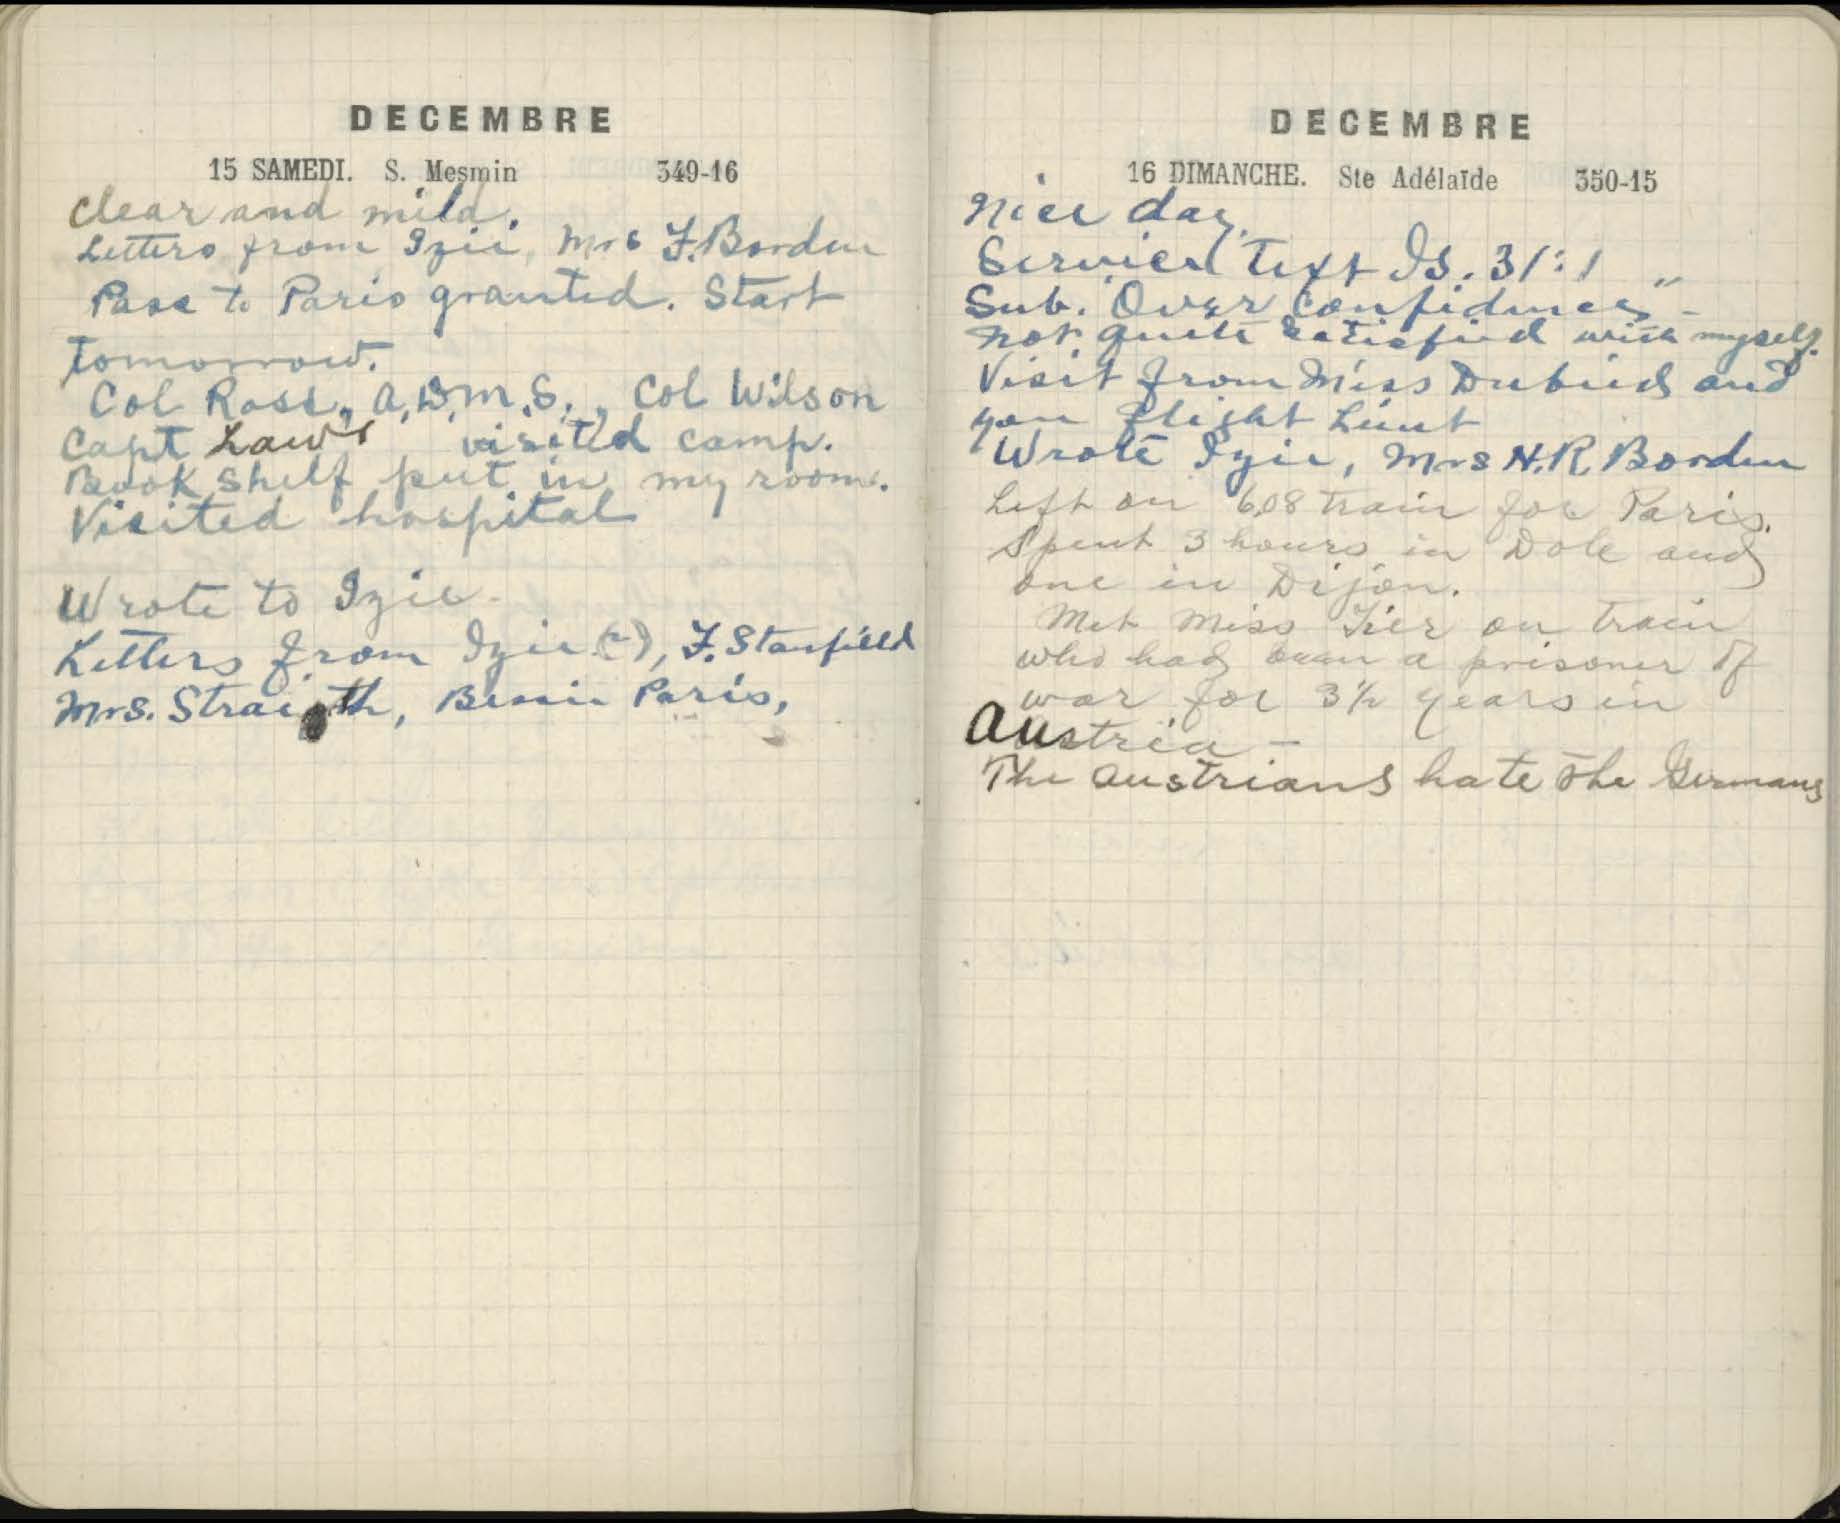 DECEMBRE
15 SAMEDI. S. Mesmin 349-16
Clear and mild.
Letters from Izie, Mrs F. Borden
Pass to Paris granted. Start
tomorrow.
Col Ross, A.D.M.S., Col Wilson
Capt Laws visited camp.
Book shelf put in my room.
Visited hospital
Wrote to Izie.
Letters from Izie (2), F. Stanfield
Mrs. Straith, Bessie Paris,
DECEMBRE
16 DIMANCHE. Ste Adélaïde 350-15
Nice day.
Services Text Is. 31:1
Sub. "Over Confidence" -
not quite satisfied with myself.
Visit from Miss and
Flight Lieut
Wrote Izie, Mrs H.R. Borden
Left on 6.08 train for Paris.
Spent 3 hours in Dole and
one in Dijon.
Met Miss on train
who had been a prisoner of
war for 3½ years in
Austria -
The Austrians hate the Germans